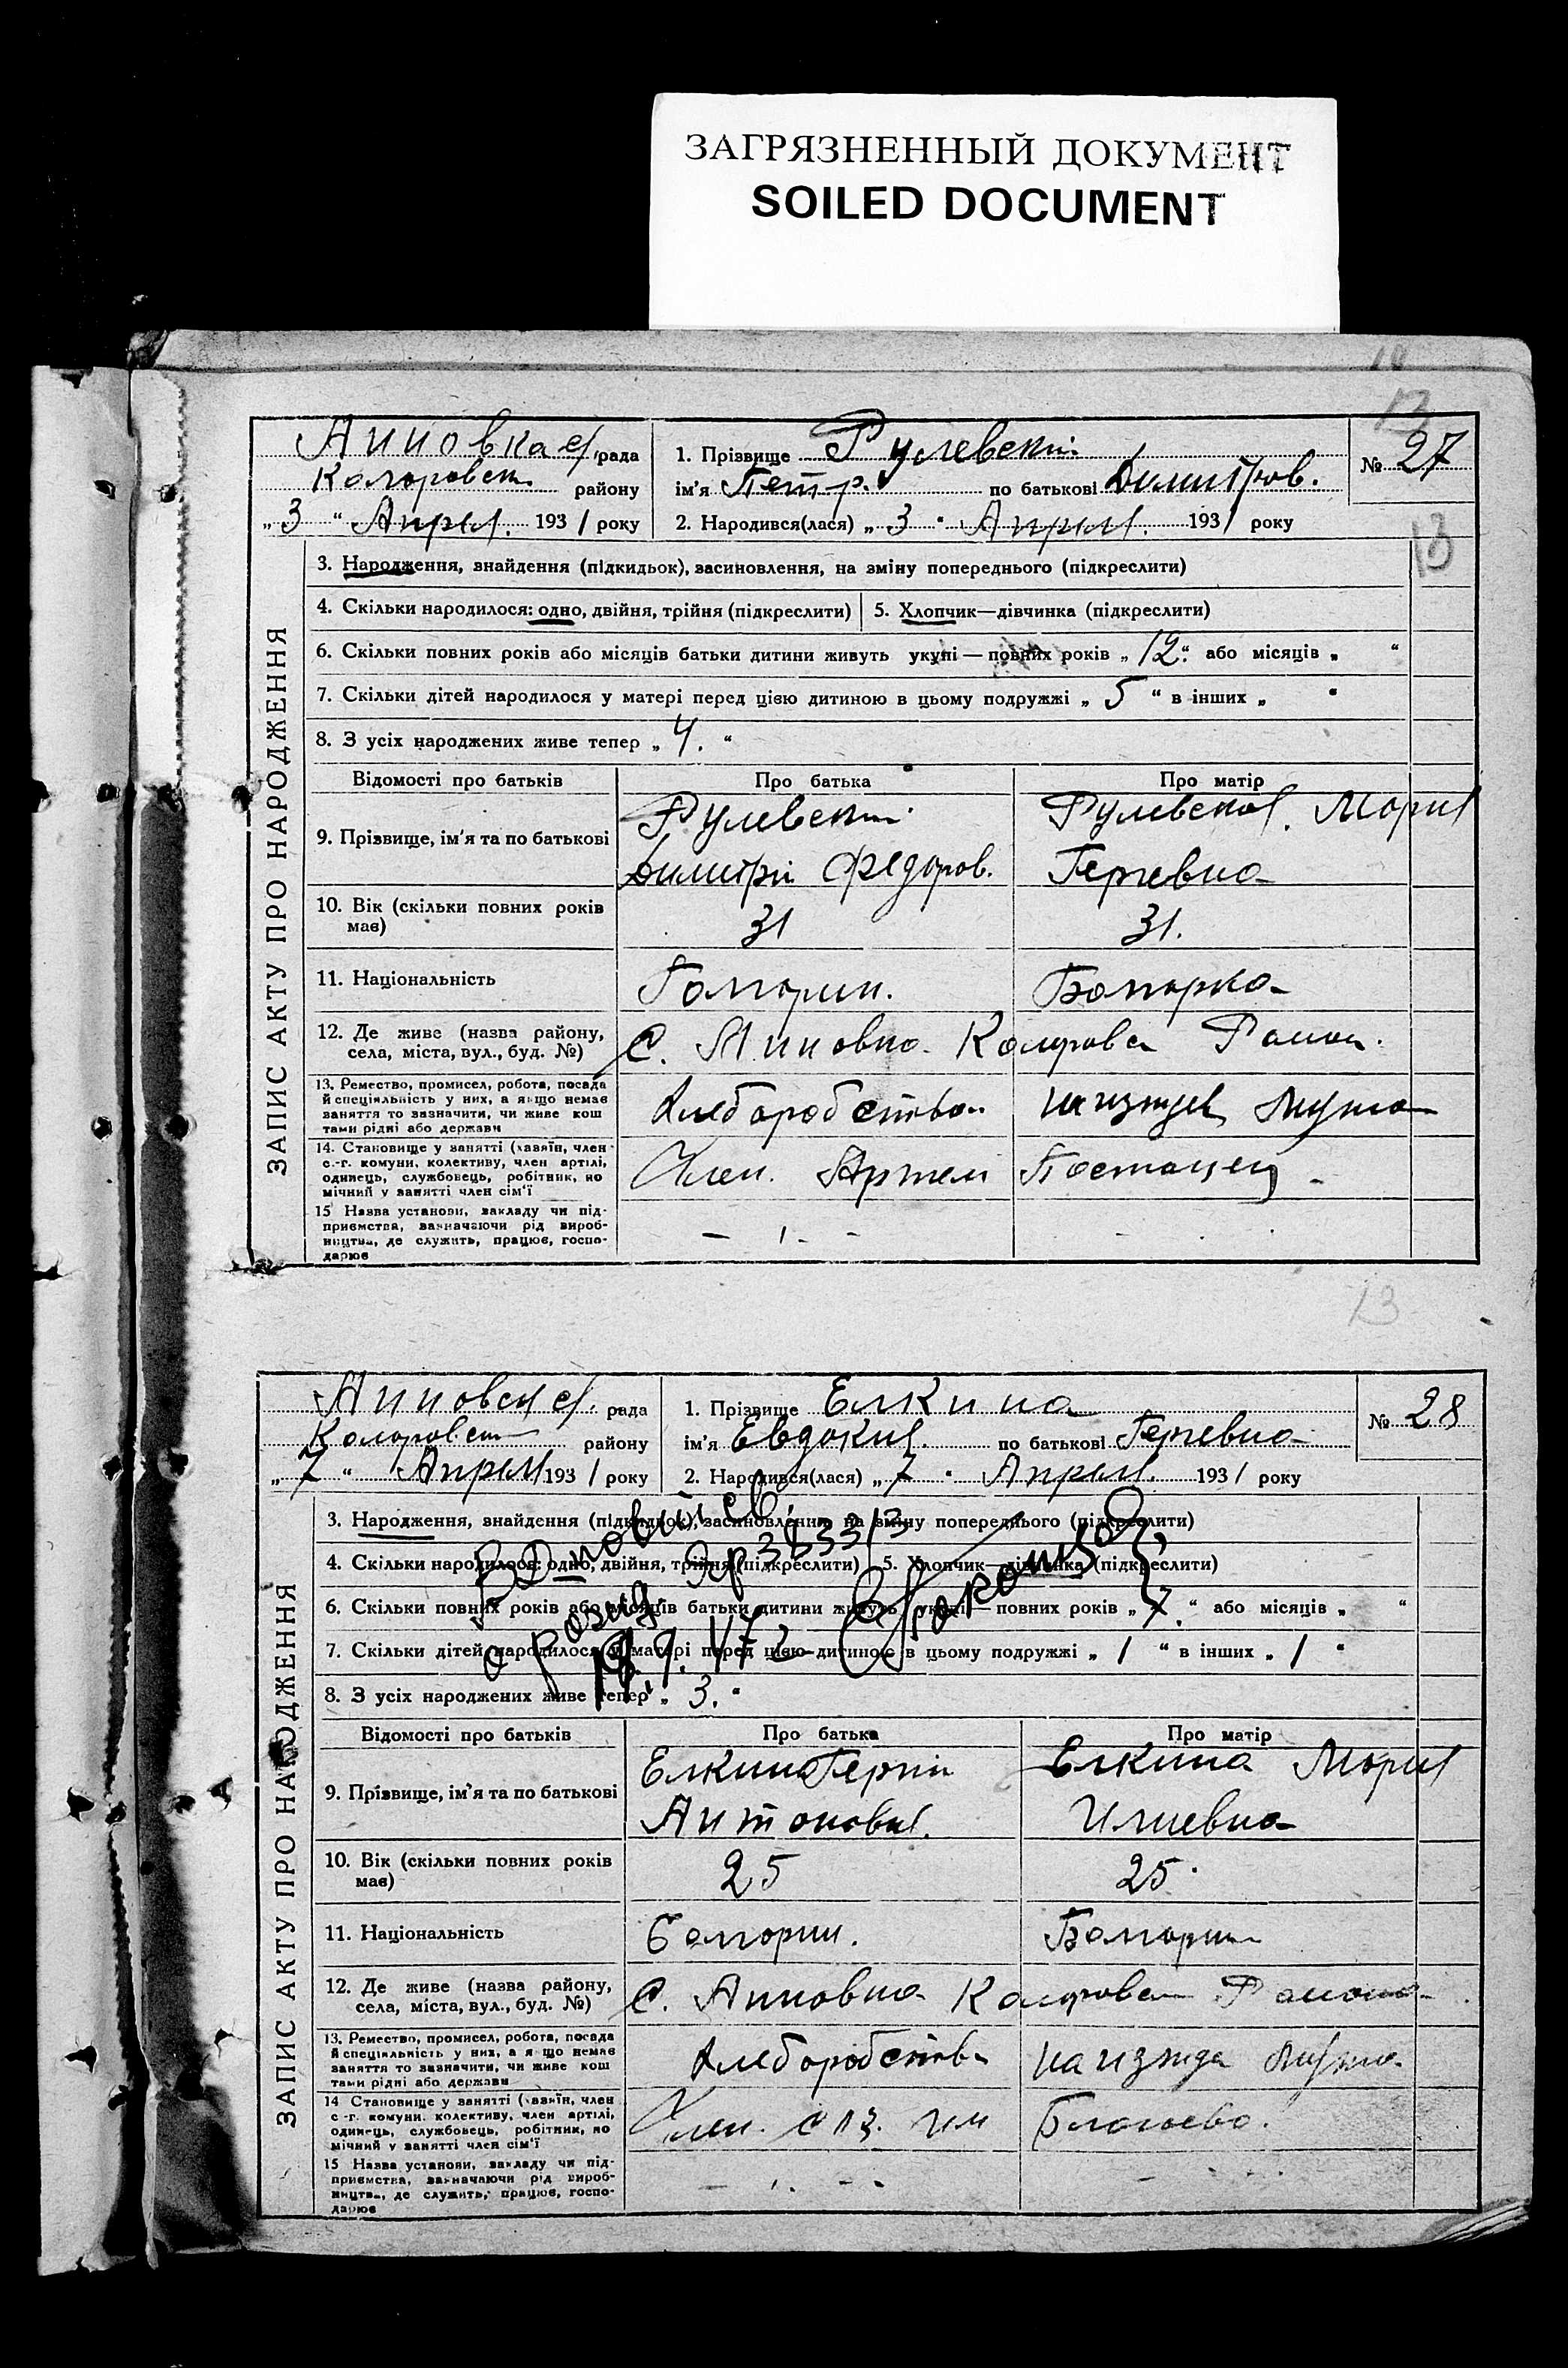 ЗАГРЯЗНЕННЫЙ ДОКУМЕНТ
SOILED DOCUMENT
13
13
ЗАПИС АКТУ ПРО НАРОДЖЕННЯ
Анновка рада
району
„ 3 “ Апрел. 1931 року
1. Прізвище Рулевский
№ 27
ім'я Петр. по батькові Димитров.
2. Народився(лася) „ 3 " Апрел. 1931 року
3. Народження, знайдення (підкидьок), засиновлення, на зміну попереднього (підкреслити)
4. Скільки народилося: одно, двійня, трійня (підкреслити)
5. Хлопчик—дівчинка (підкреслити)
6. Скільки повних років або місяців батьки дитини живуть укупі — повних років „ 12 “ або місяців „ “
7. Скільки дітей народилося у матері перед цією дитиною в цьому подружжі „ 5 “ в інших „ “
8. З усіх народжених живе тепер „ 4. “
Відомості про батьків Про батька Про матір
9. Прізвище, ім'я та по батькові
Рулевский
Димитрий Федоров.
Рулевская. Мария
10. Вік (скільки повних років має)
31 31.
11. Національність
Болгарин. Болгарка
12. Де живе (назва району,
села, міста, вул., буд. №)
С. Анновка Район.
13. Ремество, промисел, робота, посада
й спеціяльність у них, а якщо немає
заняття то зазначити, чи живе кош
тами рідні або держави
Хлеборобство
на иждев мужа
14. Становище у занятті (хазяїн, член
с.-г. комуни, колективу, член артілі,
одинець, службовець, робітник, по
мічний у занятті член сім'ї
Член. Артели
15 Назва установи, закладу чи під-
приємства, зазначаючи рід вироб-
ництва, де служить, працює, госпо-
дарює
13
ЗАПИС АКТУ ПРО НАРОДЖЕННЯ
рада
району
„ 7 “ Апрел 1931 року
1. Прізвище Елкина
№ 28
ім'я Евдокия. по батькові
2. Народився(лася) „ 7 " Апрел. 1931 року
3. Народження, знайдення (підкидьок), засиновлення, на зміну попереднього (підкреслити)
4. Скільки народилося: одно, двійня, трійня (підкреслити)
5. Хлопчик—дівчинка (підкреслити)
6. Скільки повних років або місяців батьки дитини живуть укупі — повних років „ 7 “ або місяців „ “
7. Скільки дітей народилося у матері перед цією дитиною в цьому подружжі „ 1 “ в інших „ 1 “
8. З усіх народжених живе тепер „ 3. “
Відомості про батьків Про батька Про матір
9. Прізвище, ім'я та по батькові
Елкин
Елкина Мария
Илиевна
10. Вік (скільки повних років має)
25 25
11. Національність
Болгарин. Болгарин
12. Де живе (назва району,
села, міста, вул., буд. №)
С. Анновка Района
13. Ремество, промисел, робота, посада
й спеціяльність у них, а якщо немає
заняття то зазначити, чи живе кош
тами рідні або держави
Хлеборобство
на иждев мужа
14 Становище у занятті (хазяїн, член
с-г. комуни, колективу, член артілі,
одинець, службовець, робітник, по
мічний у занятті член сім'ї
Член.
15 Назва установи, закладу чи під-
приємства, зазначаючи рід вироб-
ництва, де служить, працює, госпо-
дарює